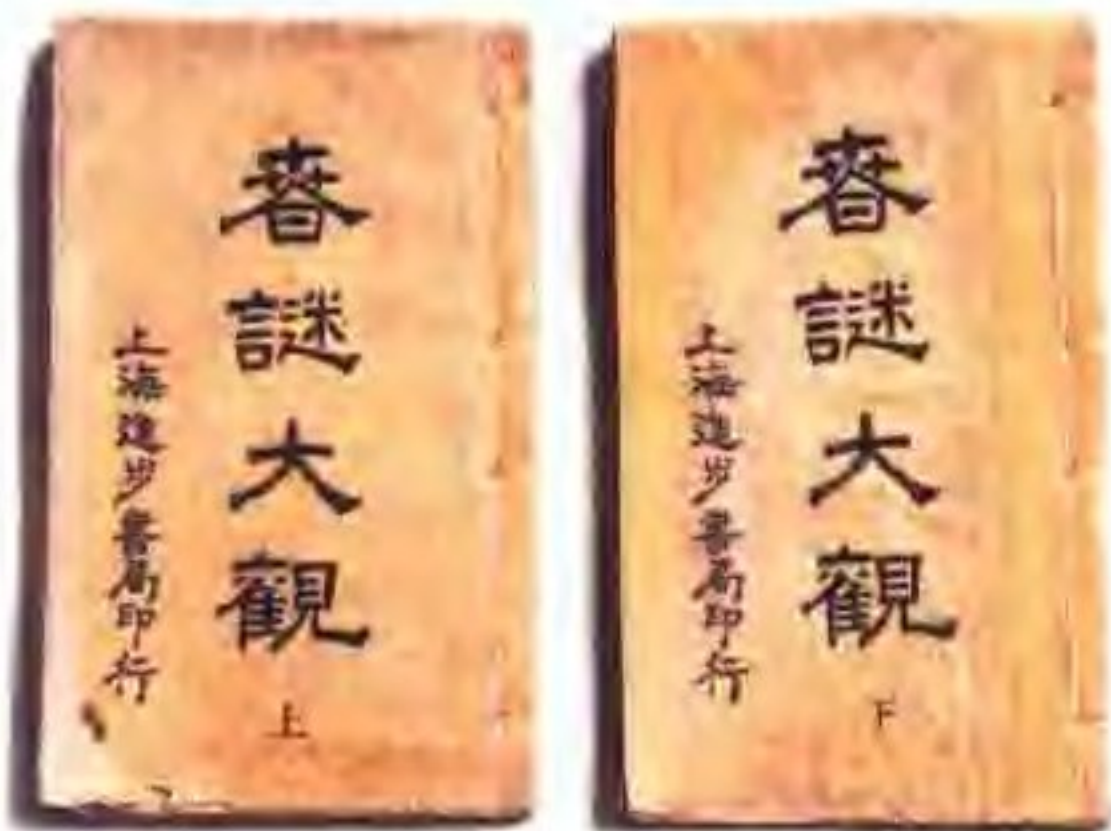 春謎大觀 上
上海進步書局印行
春謎大觀 下
上海進步書局印行